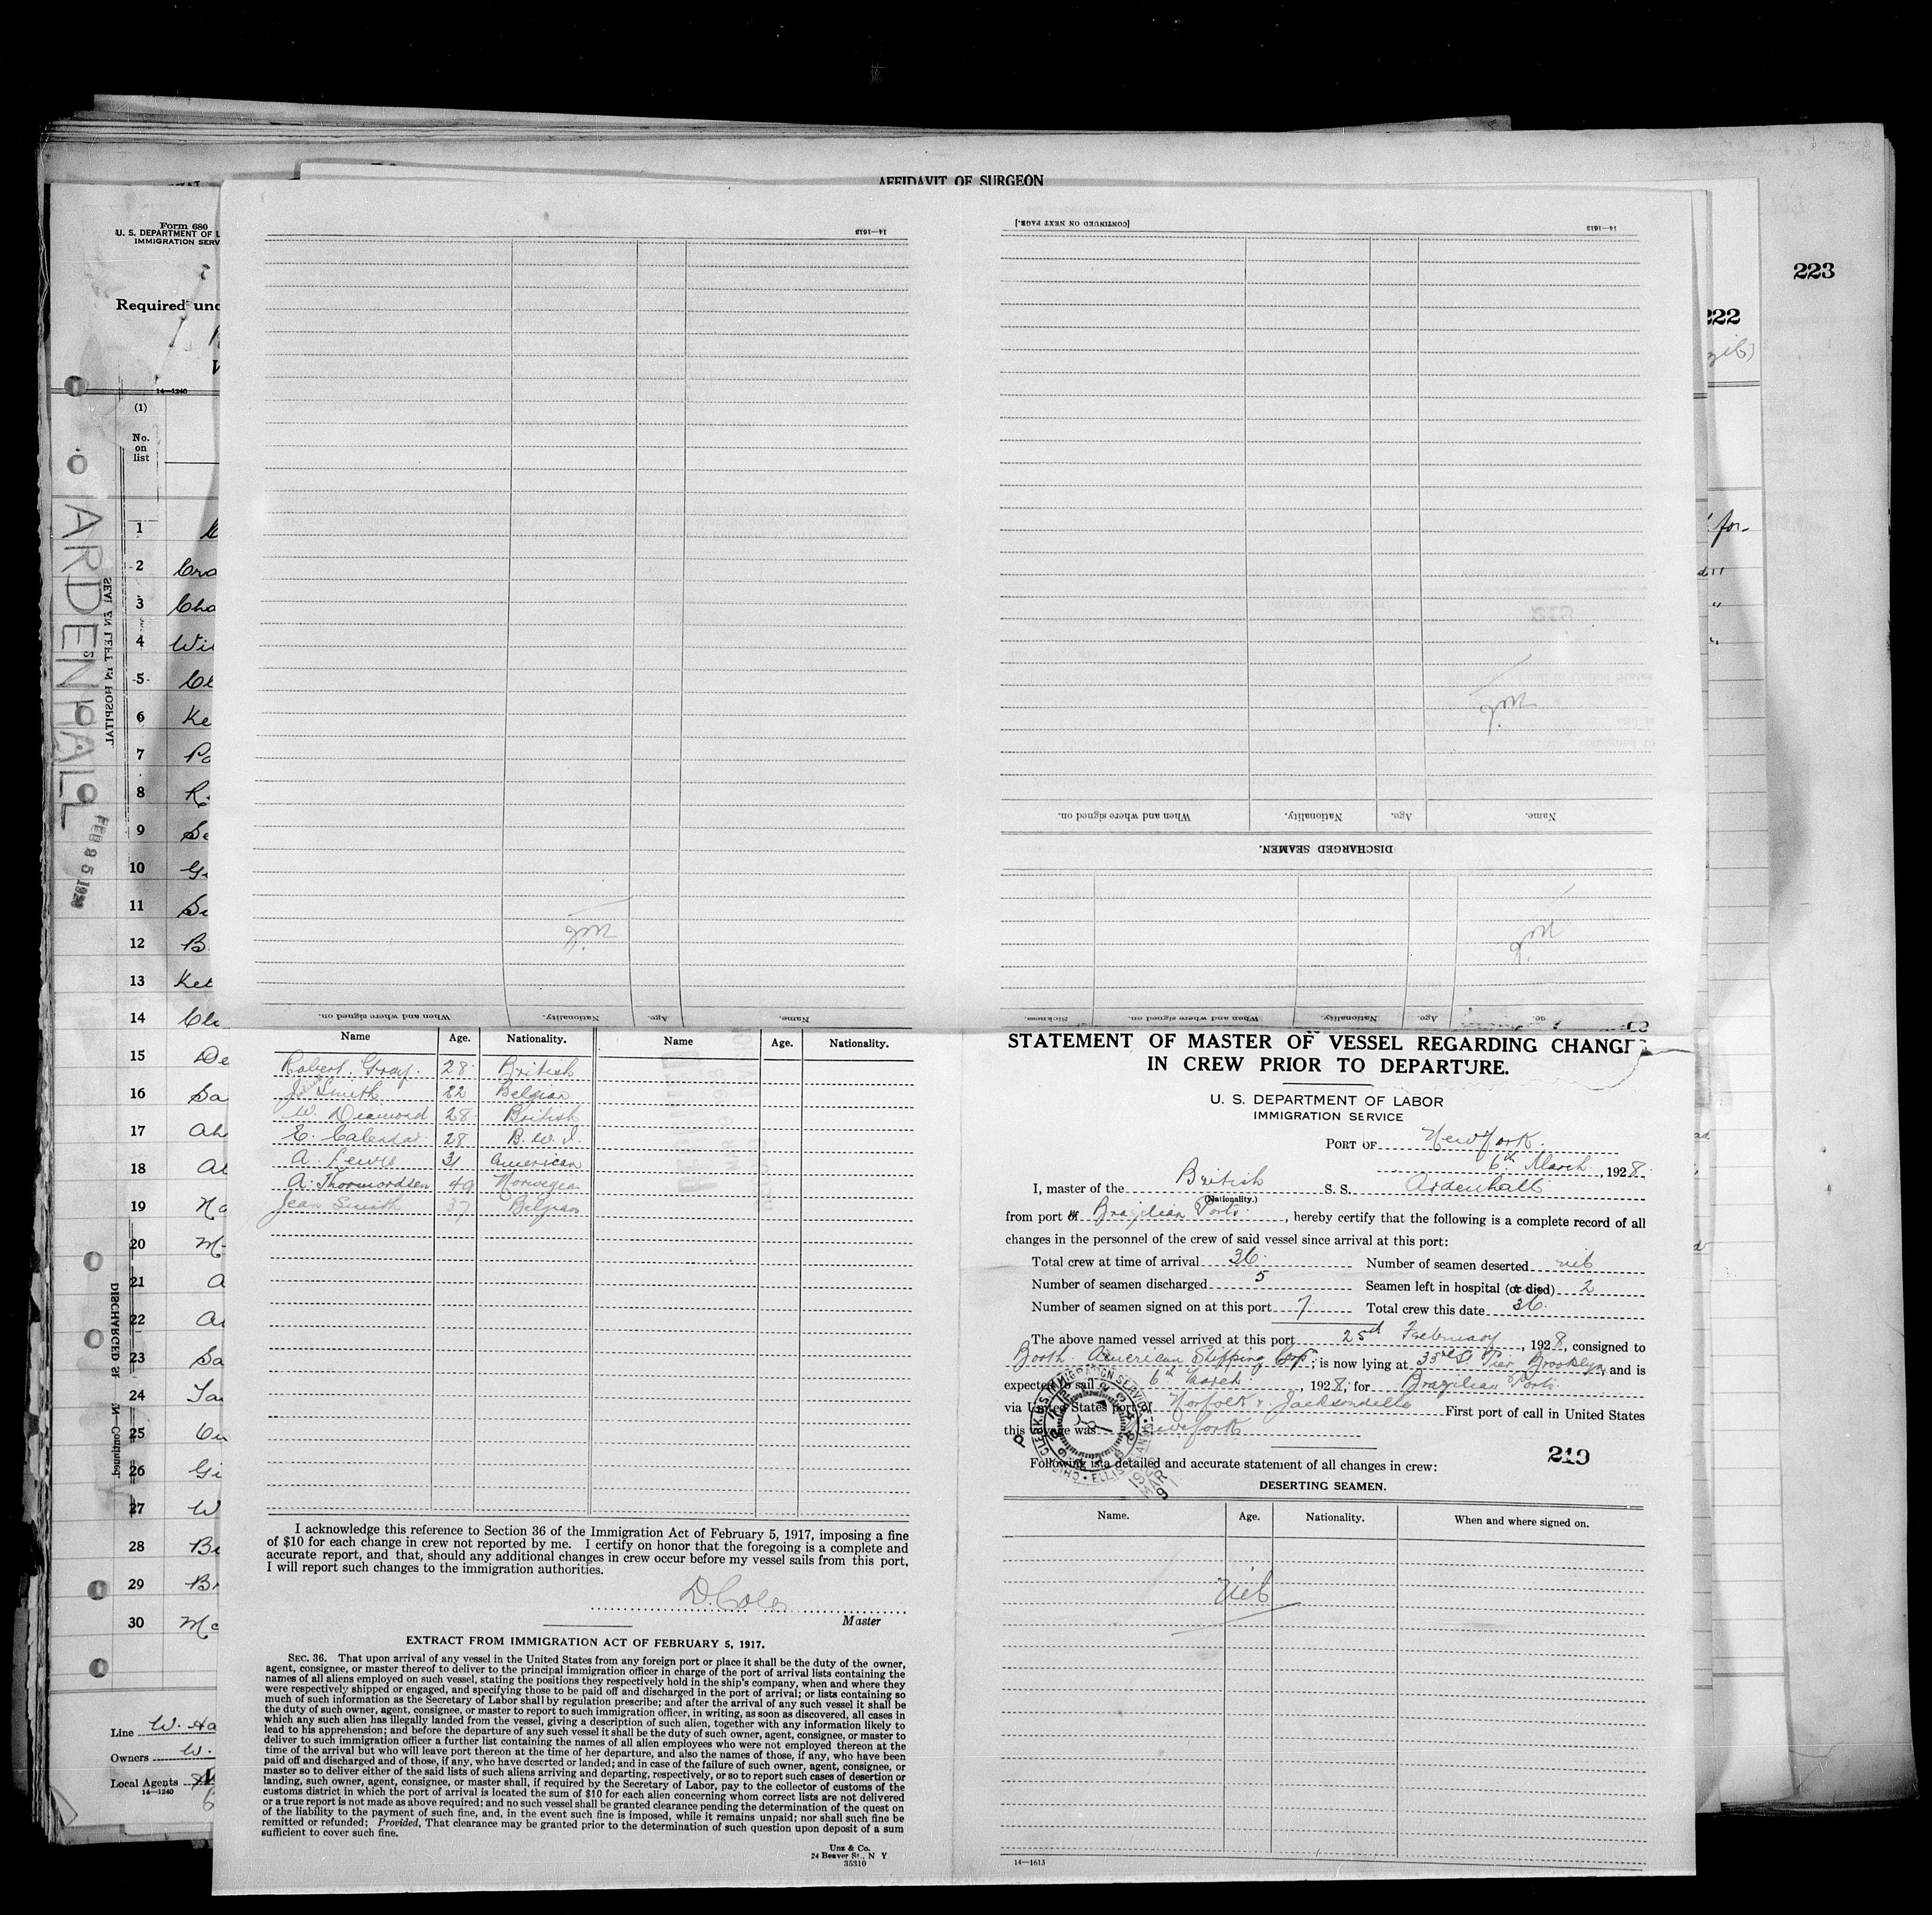 AFFIDAVIT OF SURGEON
223
222
Form 680
U. S. DEPARTMENT OF L
IMMIGRATION SERV
Required und
14—1240
(1)
No.
on
list
1
2 Cra
3 Cha
4 Wil
5 Cl
6 Ke
7 Po
8 R
9 Se
10 Gi
11 Su
12 B
13 Ket
14 Cle
15 De
16 Sa
17 Ah
18 Al
19 Na
20 M
21 A
22 Al
23 Sa
24
25
26 Gi
27 W
28 Be
29 Br
30 Mc
Line W. Ha
Owners W.
Local Agents
14—1240
ARDENHALL
FEB 25 1928
SEAMEN LEFT IN HOSPITAL.
DISCHARGED SEAMEN—Continued.
14—1613
Nil
When and where signed on. Nationality. Age. Name.
[CONTINUED ON NEXT PAGE.] 14—1613
Nil
When and where signed on. Nationality. Age. Name.
DISCHARGED SEAMEN.
Nil
Sickness. When and where signed on. Nationality. Age.
Name Age. Nationality. Name Age. Nationality.
Robert Gray. 28 British
J. Smith 22 Belgian
W. Diamond 28 British
E. Calendar 28 B. W. I.
A. Lewis 31 American
A. Thormordsen 49 Norwegian
Jean Smith 37 Belgian
I acknowledge this reference to Section 36 of the Immigration Act of February 5, 1917, imposing a fine
of $10 for each change in crew not reported by me. I certify on honor that the foregoing is a complete and
accurate report, and that, should any additional changes in crew occur before my vessel sails from this port,
I will report such changes to the immigration authorities.
D. Coles
Master
EXTRACT FROM IMMIGRATION ACT OF FEBRUARY 5, 1917.
SEC. 36. That upon arrival of any vessel in the United States from any foreign port or place it shall be the duty of the owner,
agent, consignee, or master thereof to deliver to the principal immigration officer in charge of the port of arrival lists containing the
names of all aliens employed on such vessel, stating the positions they respectively hold in the ship's company, when and where they
were respectively shipped or engaged, and specifying those to be paid off and discharged in the port of arrival; or lists containing so
much of such information as the Secretary of Labor shall by regulation prescribe; and after the arrival of any such vessel it shall be
the duty of such owner, agent, consignee, or master to report to such immigration officer, in writing, as soon as discovered, all cases in
which any such alien has illegally landed from the vessel, giving a description of such alien, together with any information likely to
lead to his apprehension; and before the departure of any such vessel it shall be the duty of such owner, agent, consignee, or master to
deliver to such immigration officer a further list containing the names of all alien employees who were not employed thereon at the
time of the arrival but who will leave port thereon at the time of her departure, and also the names of those, if any, who have been
paid off and discharged and of those, if any, who have deserted or landed; and in case of the failure of such owner, agent, consignee, or
master so to deliver either of the said lists of such aliens arriving and departing, respectively, or so to report such cases of desertion or
landing, such owner, agent, consignee, or master shall, if required by the Secretary of Labor, pay to the collector of customs of the
customs district in which the port of arrival is located the sum of $10 for each alien concerning whom correct lists are not delivered
or a true report is not made as above required; and no such vessel shall be granted clearance pending the determination of the quest on
of the liability to the payment of such fine, and, in the event such fine is imposed, while it remains unpaid; nor shall such fine be
remitted or refunded; Provided, That clearance may be granted prior to the determination of such question upon deposit of a sum
sufficient to cover such fine.
Unz & Co.
24 Beaver St., N Y
35310
STATEMENT OF MASTER OF VESSEL REGARDING CHANGE
IN CREW PRIOR TO DEPARTURE.
U. S. DEPARTMENT OF LABOR
IMMIGRATION SERVICE
PORT OF New York.
6th March, 1928
I, master of the British S. S. Ardenhall
(Nationality.)
from port of Brazilian Ports., hereby certify that the following is a complete record of all
changes in the personnel of the crew of said vessel since arrival at this port:
Total crew at time of arrival 36. Number of seamen deserted nil
Number of seamen discharged 5 Seamen left in hospital (or died) 2
Number of seamen signed on at this port 7 Total crew this date 36.
The above named vessel arrived at this port 25th February, 1928, consigned to
Booth American Shipping Corp; is now lying at 33rd S. Pier Brooklyn, and is
expected to sail 6th March, 1928; for Brazilian Ports
via United States port of Norfolk & Jacksonville First port of call in United States
this voyage was New York
219
Following is a detailed and accurate statement of all changes in crew:
DESERTING SEAMEN.
Name. Age. Nationality. When and where signed on.
Nil
14—1613